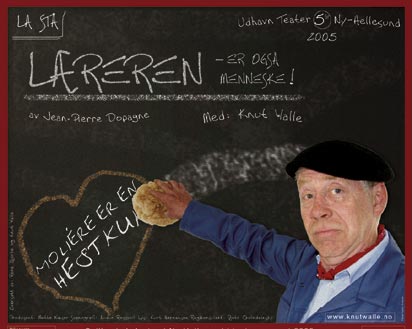 LA STÅ!
Udhavn Teater 5 Ny-Hellesund
2005
LÆREREN
- ER OGSÅ
MENNESKE!
av Jean-Pierre Dopagne
Med: Knut Walle
MOLIÈRE ER EN
HESTKU
www.knutwalle.no